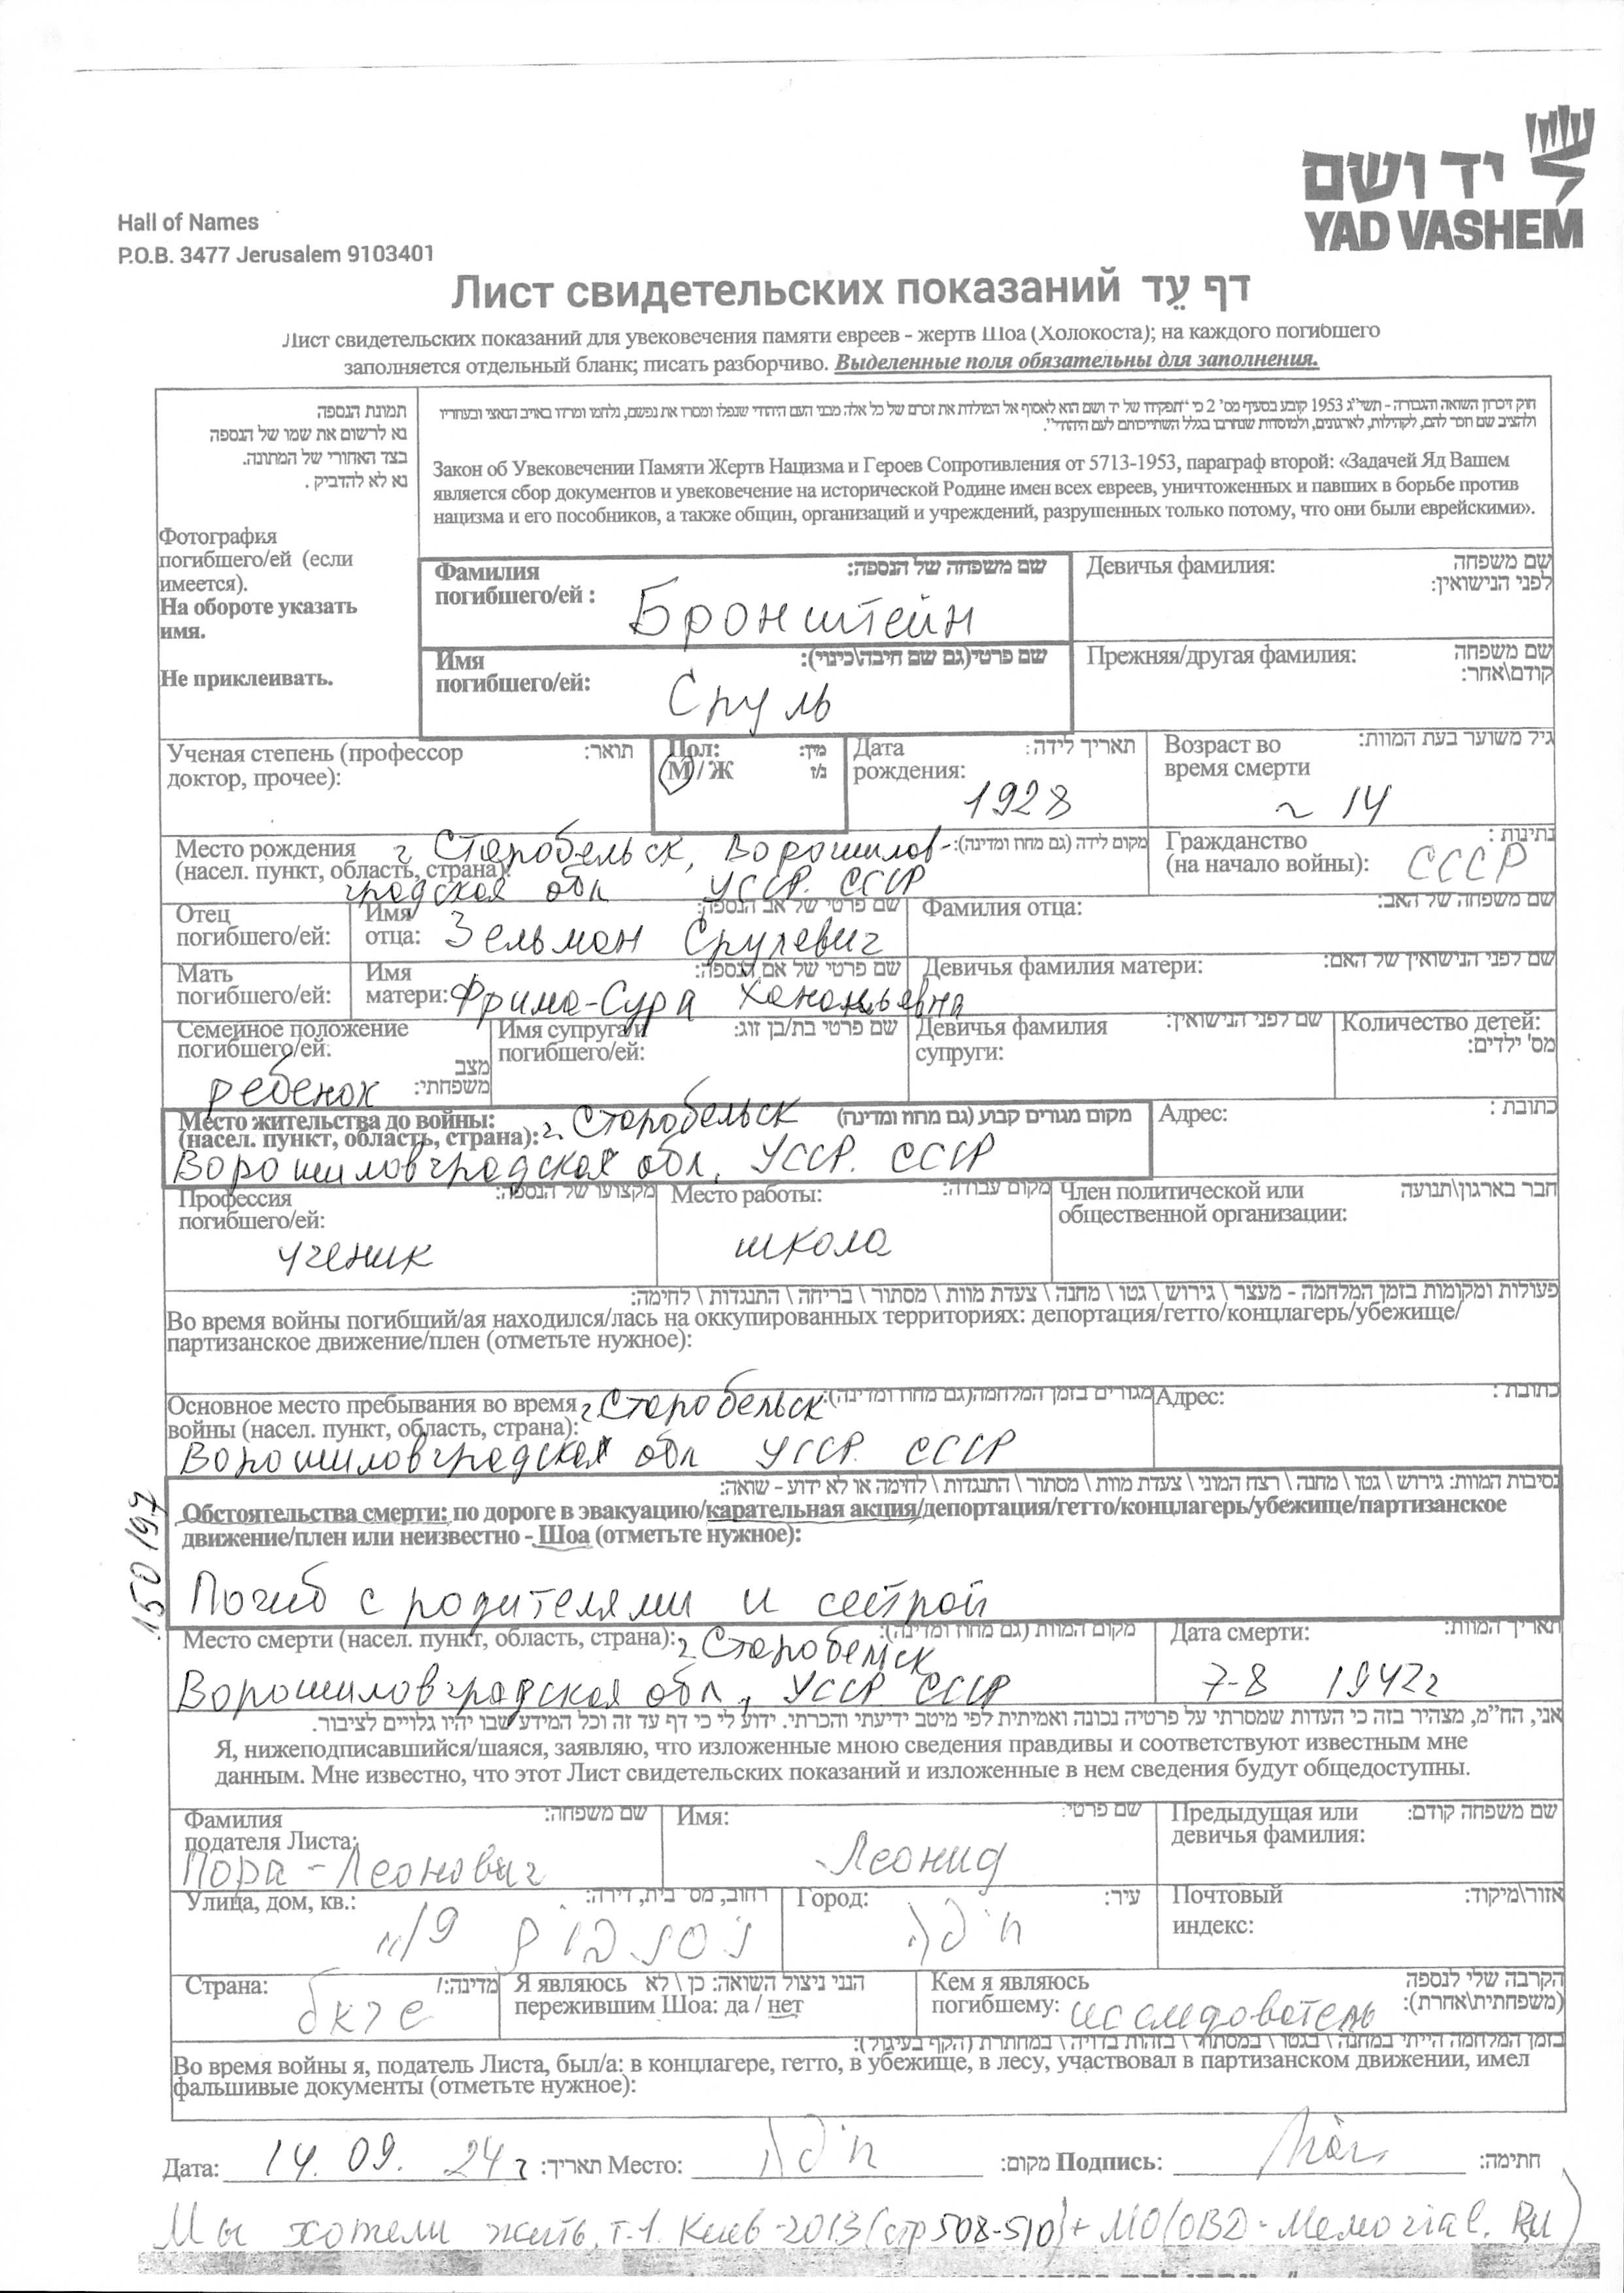 יד ושם
YAD VASHEM
Hall of Names
P.O.B. 3477 Jerusalem 9103401
Лист свидетельских показаний דף עֵד
Лист свидетельских показаний для увековечения памяти евреев - жертв Шоа (Холокоста); на каждого погибшего
заполняется отдельный бланк; писать разборчиво. Выделенные поля обязательны для заполнения.
תמונת הנספה
נא לרשום את שמו של הנספה
בצד האחורי של התמונה.
נא לא להדביק .
Фотография
погибшего/ей (если
имеется).
На обороте указать
имя.
Не приклеивать.
חוק זיכרון השואה והגבורה - תשי"ג 1953 קובע בסעיף מס' 2 כי "תפקידו של יד ושם הוא לאסוף אל המולדת את זכרם של כל אלה מבני העם היהודי שנפלו ומסרו את נפשם, נלחמו ומרדו באויב הנאצי ובעוזריו
ולהציב שם וזכר להם, לקהילות, לארגונים, ולמוסדות שנחרבו בגלל השתייכותם לעם היהודי".
Закон об Увековечении Памяти Жертв Нацизма и Героев Сопротивления от 5713-1953, параграф второй: «Задачей Яд Вашем
является сбор документов и увековечение на исторической Родине имен всех евреев, уничтоженных и павших в борьбе против
нацизма и его пособников, а также общин, организаций и учреждений, разрушенных только потому, что они были еврейскими».
Фамилия погибшего/ей : שם משפחה של הנספה:
Бронштейн
Девичья фамилия: שם משפחה לפני הנישואין:
Имя погибшего/ей: שם פרטי(גם שם חיבה\כינוי):
Сруль
Прежняя/другая фамилия: שם משפחה קודם\אחר:
Ученая степень (профессор доктор, прочее): תואר:
Пол: М / Ж מין: ז/נ
Дата рождения: תאריך לידה:
1928
Возраст во время смерти גיל משוער בעת המוות:
~ 14
Место рождения (насел. пункт, область, страна): מקום לידה (גם מחוז ומדינה):
г Старобельск, Ворошилов-
градская обл УССР. СССР
Гражданство (на начало войны): נתינות :
СССР
Отец погибшего/ей: Имя отца: שם פרטי של אב הנספה:
Зельман Срулевич
Фамилия отца: שם משפחה של האב:
Мать погибшего/ей: Имя матери: שם פרטי של אם הנספה:
Фрима-Сура Хананьевна
Девичья фамилия матери: שם לפני הנישואין של האם:
Семейное положение погибшего/ей: מצב משפחתי:
ребенок
Имя супруга/и погибшего/ей: שם פרטי בת/בן זוג:
Девичья фамилия супруги: שם לפני הנישואין:
Количество детей: מס' ילדים:
Место жительства до войны: (насел. пункт, область, страна): מקום מגורים קבוע (גם מחוז ומדינה)
г. Старобельск
Ворошиловградская обл. УССР. СССР
Адрес: כתובת :
Профессия погибшего/ей: מקצועו של הנספה:
ученик
Место работы: מקום עבודה:
школа
Член политической или общественной организации: חבר בארגון\תנועה
פעולות ומקומות בזמן המלחמה - מעצר \ גירוש \ גטו \ מחנה \ צעדת מוות \ מסתור \ בריחה \ התנגדות \ לחימה:
Во время войны погибший/ая находился/лась на оккупированных территориях: депортация/гетто/концлагерь/убежище/
партизанское движение/плен (отметьте нужное):
Основное место пребывания во время войны (насел. пункт, область, страна): מגורים בזמן המלחמה(גם מחוז ומדינה):
г. Старобельск
Ворошиловградская обл УССР. СССР
Адрес: כתובת :
150197
נסיבות המוות: גירוש \ גטו \ מחנה \ רצח המוני \ צעדת מוות \ מסתור \ התנגדות \ לחימה או לא ידוע - שואה:
Обстоятельства смерти: по дороге в эвакуацию/карательная акция/депортация/гетто/концлагерь/убежище/партизанское
движение/плен или неизвестно - Шоа (отметьте нужное):
Погиб с родителями и сестрой
Место смерти (насел. пункт, область, страна): מקום המוות (גם מחוז ומדינה):
г. Старобельск
Ворошиловградская обл, УССР СССР
Дата смерти: תאריך המוות:
7-8 1942г
אני, הח"מ, מצהיר בזה כי העדות שמסרתי על פרטיה נכונה ואמיתית לפי מיטב ידיעתי והכרתי. ידוע לי כי דף עד זה וכל המידע שבו יהיו גלויים לציבור.
Я, нижеподписавшийся/шаяся, заявляю, что изложенные мною сведения правдивы и соответствуют известным мне
данным. Мне известно, что этот Лист свидетельских показаний и изложенные в нем сведения будут общедоступны.
Фамилия подателя Листа: שם משפחה:
Пора-Леонович
Имя: שם פרטי:
Леонид
Предыдущая или девичья фамилия: שם משפחה קודם:
Улица, дом, кв.: רחוב, מס' בית, דירה:
Город: עיר:
חיפה
Почтовый индекс: אזור\מיקוד:
Страна: מדינה:
Я являюсь пережившим Шоа: да / нет הנני ניצול השואה: כן \ לא
Кем я являюсь погибшему: הקרבה שלי לנספה (משפחתית\אחרת):
исследователь
בזמן המלחמה הייתי במחנה \ בגטו \ במסתור \ בזהות בדויה \ במחתרת (הקף בעיגול):
Во время войны я, податель Листа, был/а: в концлагере, гетто, в убежище, в лесу, участвовал в партизанском движении, имел
фальшивые документы (отметьте нужное):
Дата: 14. 09. 24 г תאריך: Место: חיפה מקום: Подпись: חתימה:
Мы хотели жить, т-1. Киев-2013 (стр 508-510) + МО (OBD-Memorial. Ru)